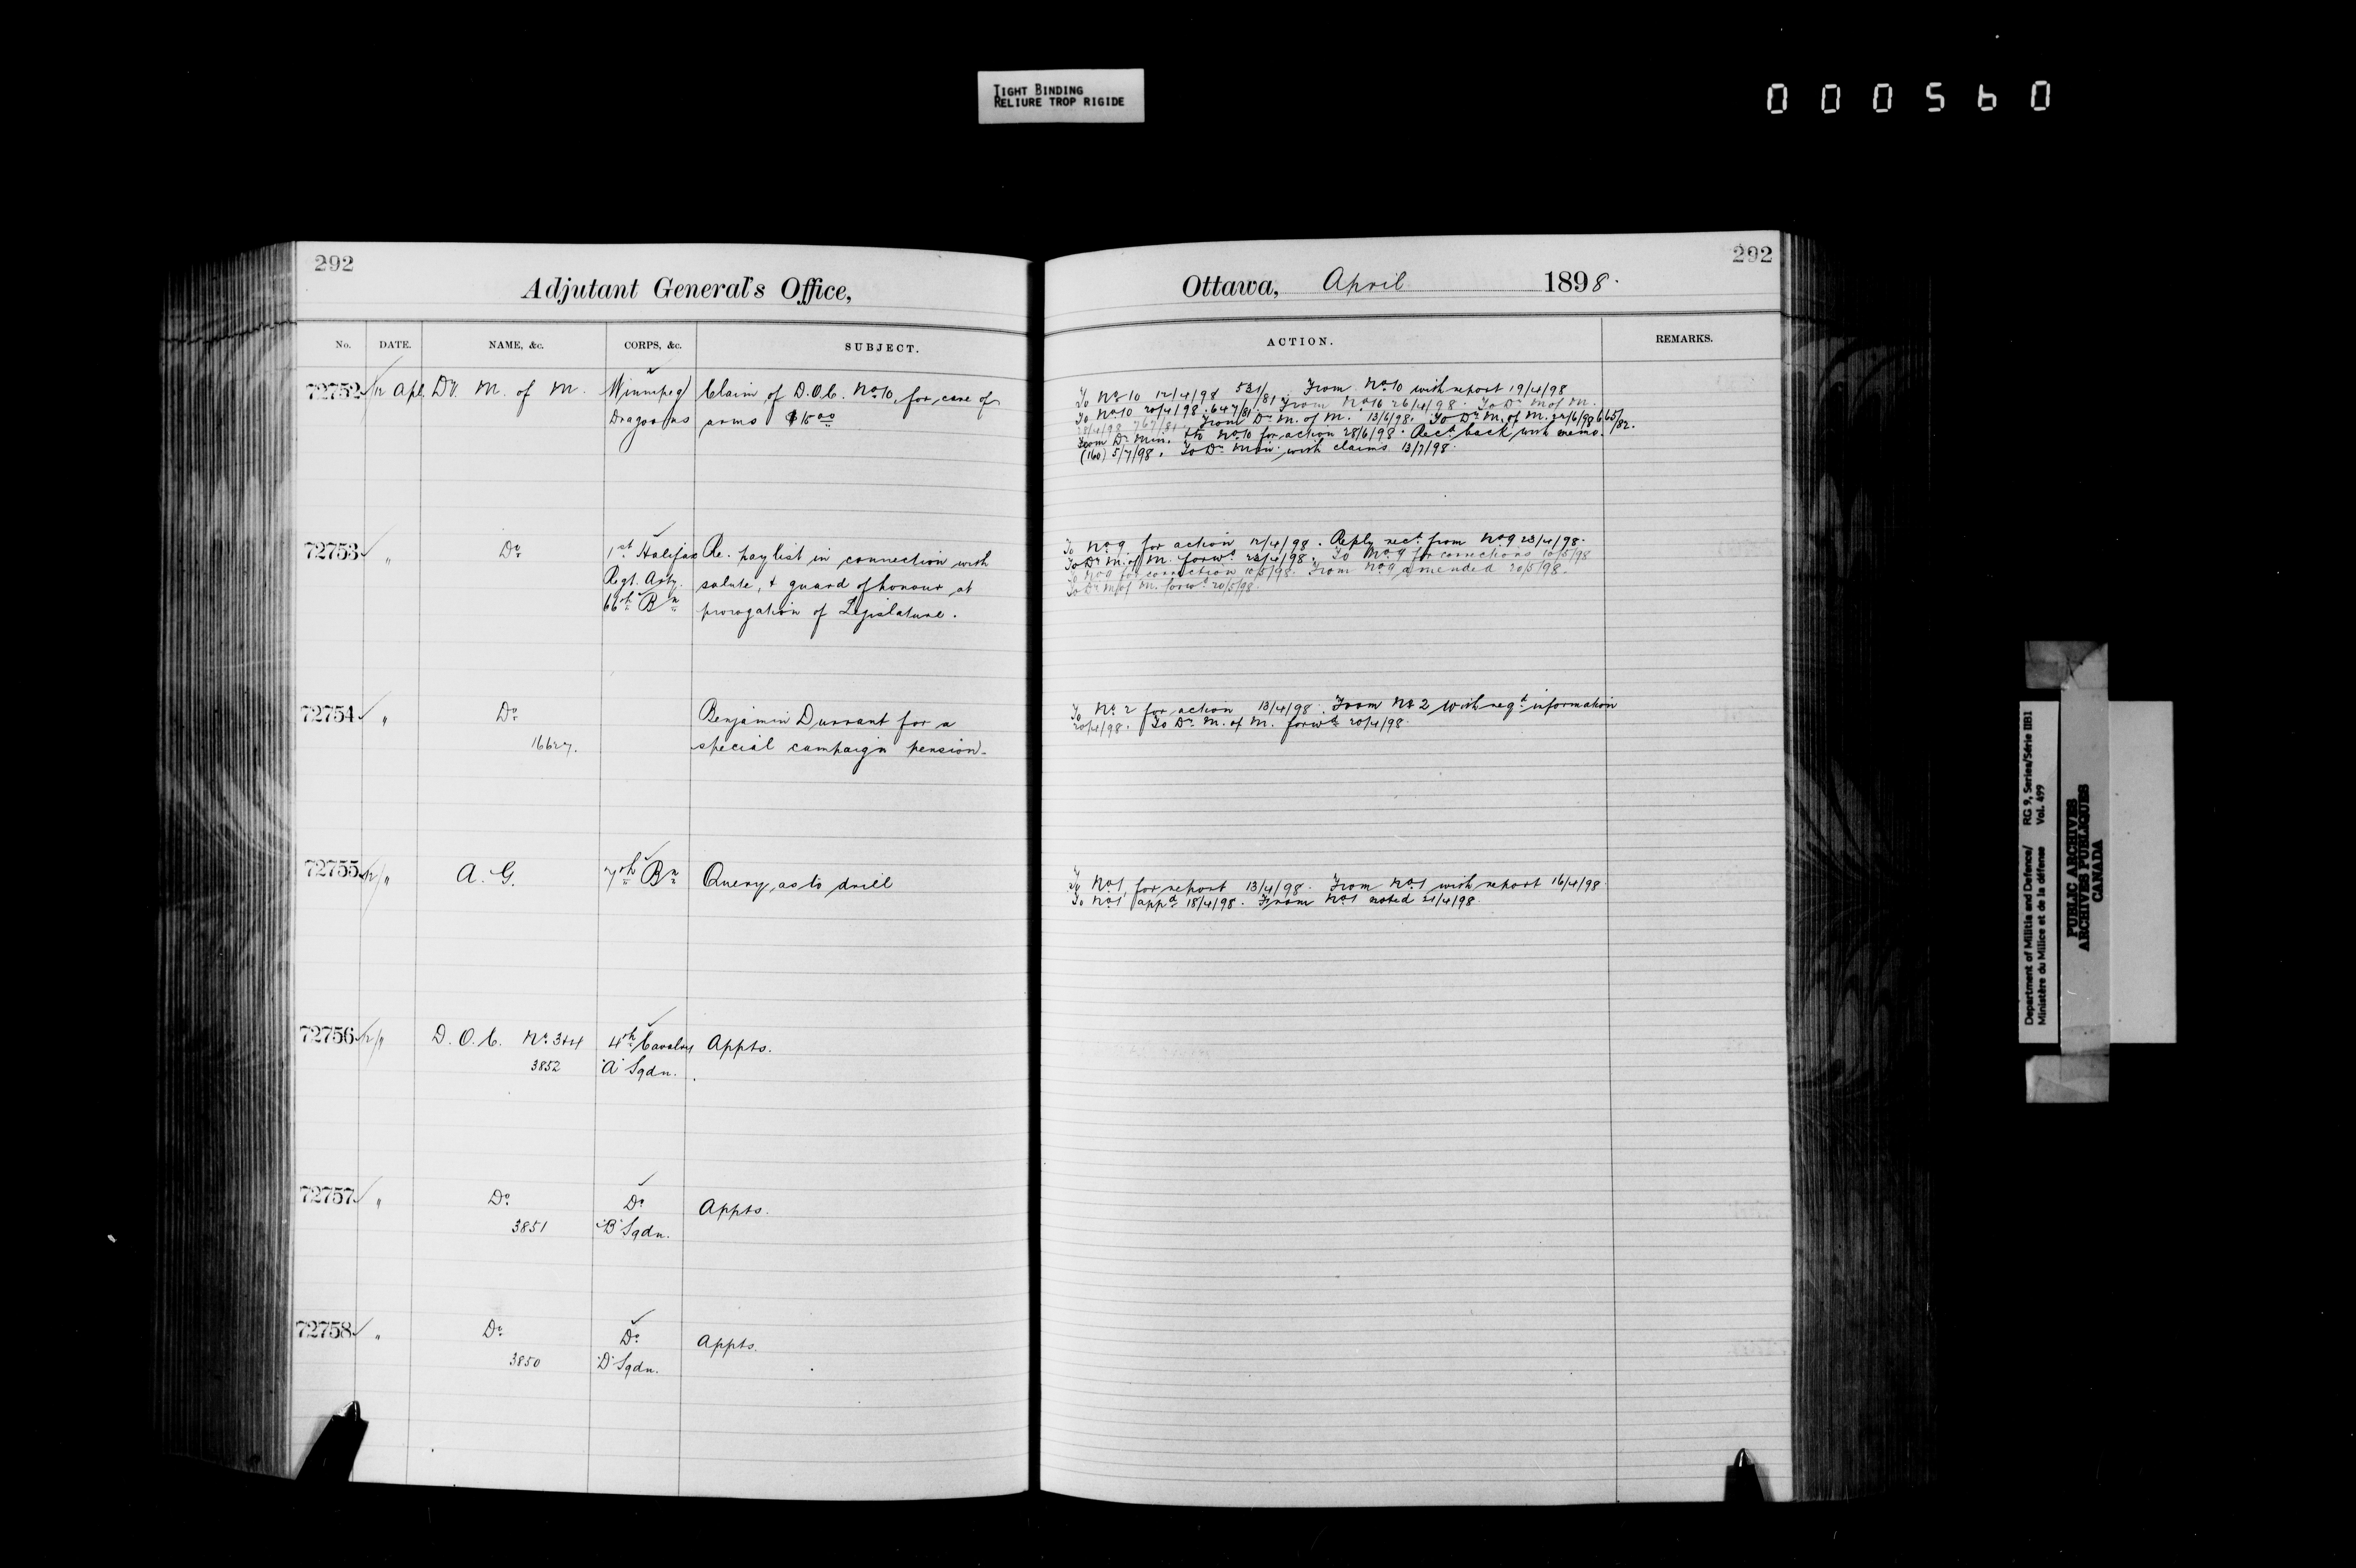 TIGHT BINDING
RELIURE TROP RIGIDE
000560
292
Adjutant General's Office,
No. DATE. NAME, &c. CORPS, &c. SUBJECT.
72752 12 Apl Dy. M. of M. Winnipeg Claim of D.O.C. No. 10, for care of
Dragoons arms $15.00
72753 " Do. 1st Halifax Re. pay list in connection with
Regt. Arty. salute, & guard of honour at
66th Bn prorogation of Legislature.
72754 " Do. Benjamin Durrant for a
16627. special campaign pension.
72755 " A. G. 7th Bn Query as to drill
72756 " D. O. C. No. 3&4 4th Cavalry Appts.
3852 "A" Sqdn.
72757 " Do. Do. Appts.
3851 "B" Sqdn.
72758 " Do. Do. Appts.
3850 "D" Sqdn.
292
Ottawa, April 1898.
ACTION. REMARKS.
To No. 10 12/4/98 531/81. From No. 10 with report 19/4/98
To No. 10 20/4/98. 647/81. From No. 10 26/4/98. To Dy. M of M.
28/4/98 767/81. From Dy. M. of M. 13/6/98. To Dy. M. of M. 22/6/98 665/82.
From Dy. Min. & to No. 10 for action 28/6/98. Recd. back with memo.
(160) 5/7/98. To Dy. Min. with claims 13/7/98.
To No. 9 for action 12/4/98. Reply rect. from No. 9 23/4/98.
To Dy. M. of M. forwd. 23/4/98. To No. 9 for corrections 10/5/98
To No. 9 for correction 10/5/98. From No. 9 amended 20/5/98.
To Dy. M of M. forwd. 20/5/98.
To No. 2 for action 13/4/98. From No. 2 with reqd. information
20/4/98. To Dy. M. of M. forwd. 20/4/98.
To No. 1, for report 13/4/98. From No. 1 with report 16/4/98
To No. 1 appd. 18/4/98. From No. 1 noted 21/4/98.
Department of Militia and Defence/ RG 9, Series/Série IIB1
Ministère du Milice et de la défense Vol. 499
PUBLIC ARCHIVES
ARCHIVES PUBLIQUES
CANADA